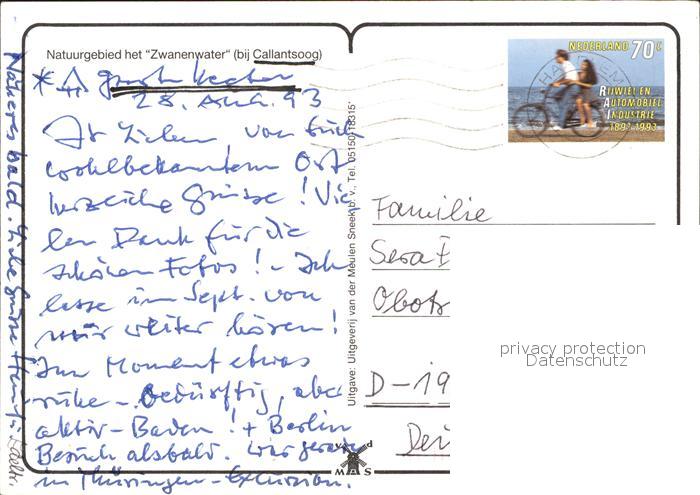 Natuurgebied het "Zwanenwater" (bij Callantsoog)
28. Aug. 93
Ihr Lieben von Euch
wohlbekanntem Ort
herzliche Grüsse! Vie-
len Dank für die
schönen Fotos! - Ich
lasse im Sept. von
mir weiter hören!
Im Moment etwas
ruhe-bedürftig, aber
aktiv-Baden! + Berlin
Besuch alsbald.
in Thüringen-Exkursion.
Näheres bald. Liebe Grüsse
Uitgave: Uitgeverij van der Meulen Sneek b.v., Tel. 05150-18315
v d
MAS
NEDERLAND 70c
RIJWIEL EN
AUTOMOBIEL
INDUSTRIE
1893-1993
HAARLEM
Familie
Obotr
D-19
privacy protection
Datenschutz